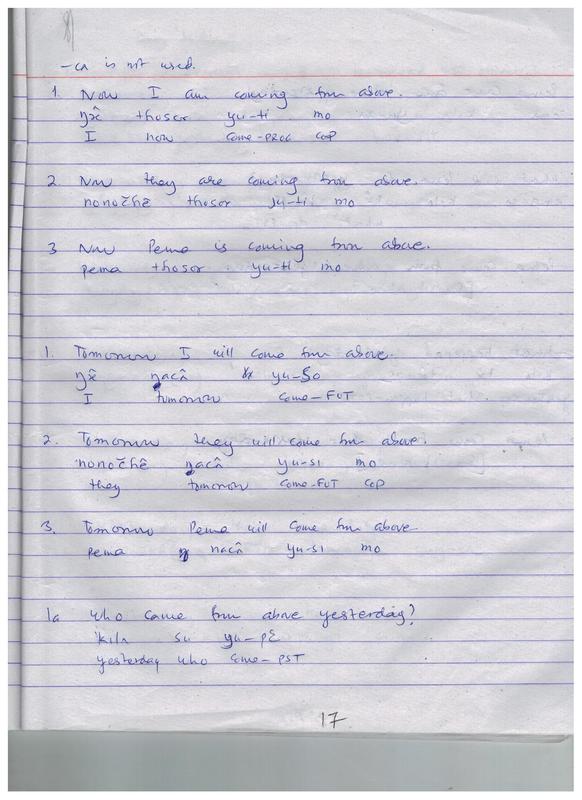 -ca is not used.
1. Now I am coming from above.
thosor yu-ti mo
I now come-PROG COP
2. Now they are coming from above.
nonočhê thosor yu-ti mo
3 Now Pema is coming from above.
pema thosor yu-ti mo
1. Tomorrow I will come from above.
ŋacâ yu-so
I tomorrow come-FUT
2. Tomorrow they will come from above.
nonočhê ŋacâ yu-si mo
they tomorrow come-FUT COP
3. Tomorrow Pema will come from above
pema nacâ yu-si mo
1a Who came from above yesterday?
su yu-pɛ
yesterday who come-PST
17